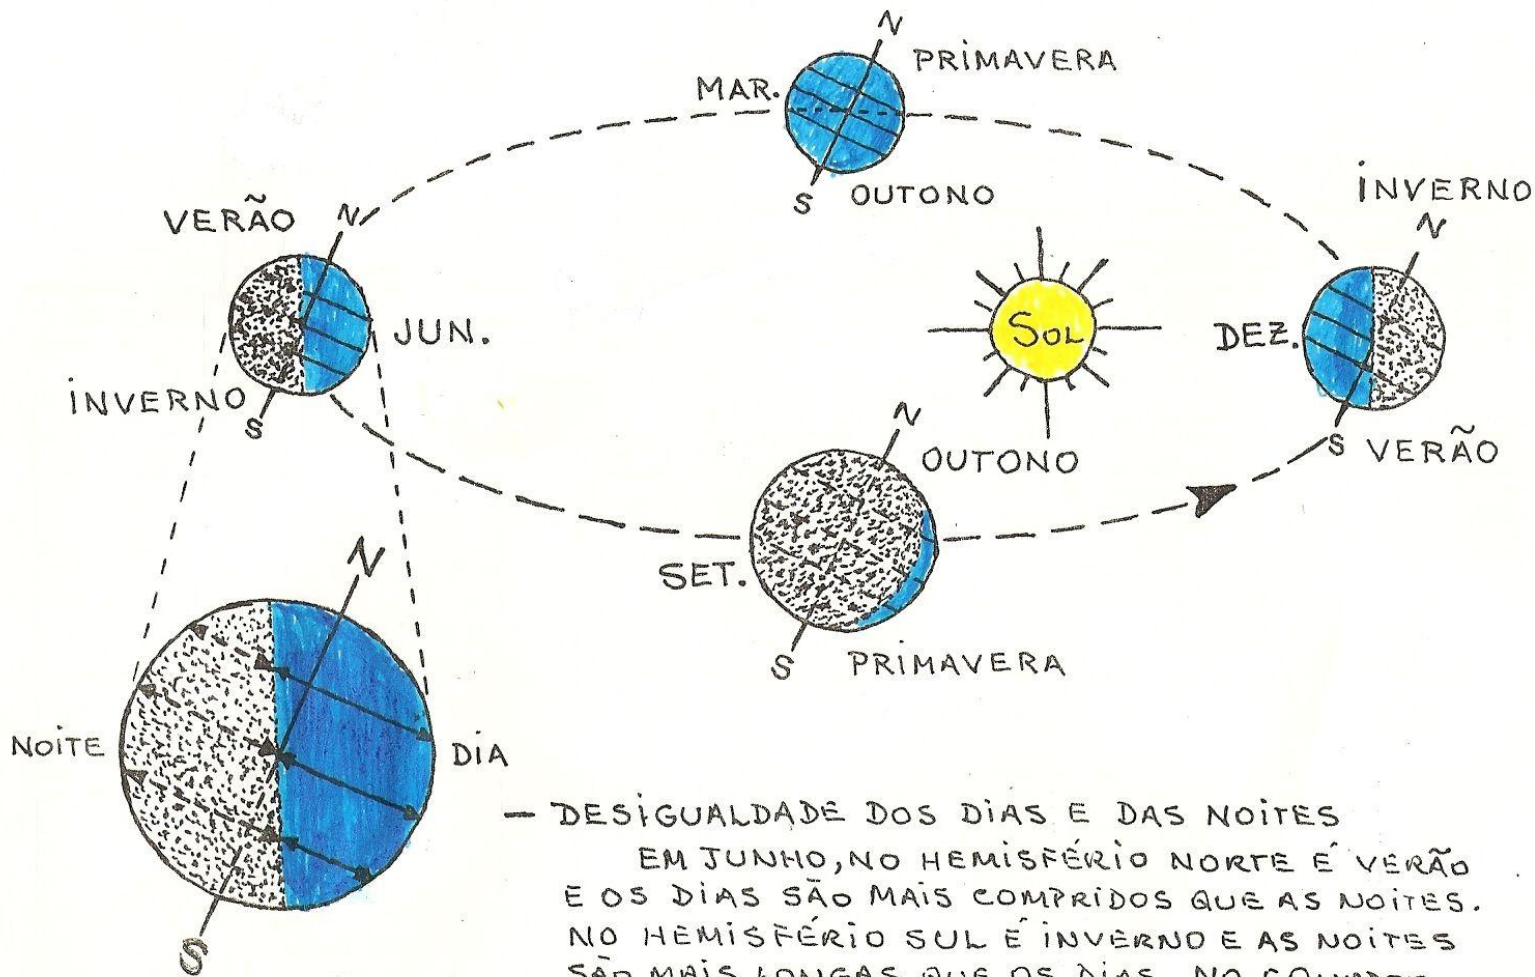 N
PRIMAVERA
MAR.
S
OUTONO
INVERNO
N
VERÃO
N
SOL
DEZ.
JUN.
INVERNO
S
N
OUTONO
S
VERÃO
SET.
S
PRIMAVERA
N
NOITE
DIA
S
— DESIGUALDADE DOS DIAS E DAS NOITES
EM JUNHO, NO HEMISFÉRIO NORTE É VERÃO
E OS DIAS SÃO MAIS COMPRIDOS QUE AS NOITES.
NO HEMISFÉRIO SUL É INVERNO E AS NOITES
SÃO MAIS LONGAS QUE OS DIAS. NO EQUADOR